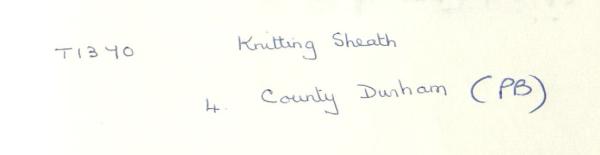 T1340 Knitting Sheath
4. County Durham (PB)